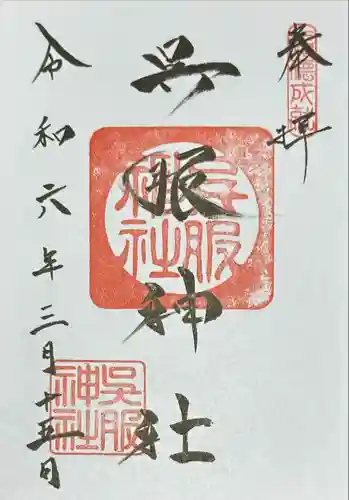 奉拝
呉服神社
呉服
神社
令和六年三月十五日
呉服
神社